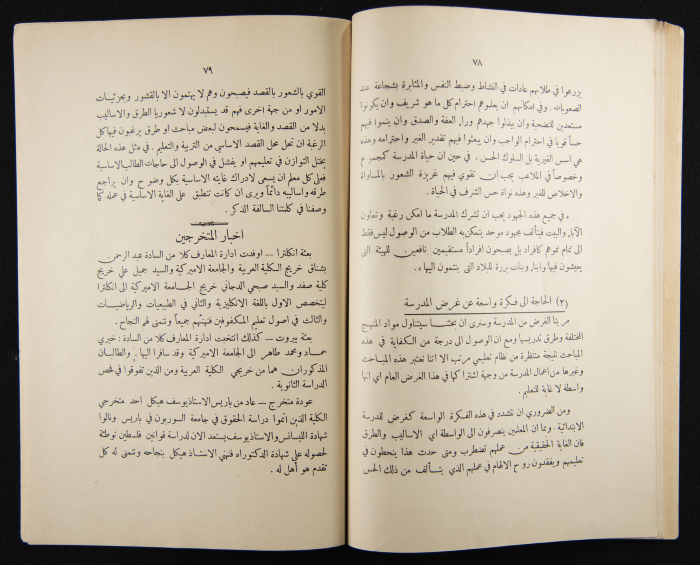 ٧٨
يزرعوا في طلابهم عادات في النشاط وضبط النفس والمثابرة بشجاعة عند
الصعوبات. وفي امكانهم ان يعلموهم احترام كل ما هو شريف وان يكونوا
مستعدين للتضحية وان يبذلوا جهدهم وراء العفة والصدق وان ينموا فيهم
حساً قويا في احترام الواجب وان يبعثوا فيهم تقدير الغير واحترامه وهذه
هي اسس الغيرية بل السلوك الحسن. في حين ان حياة المدرسة كمجموع
وخصوصاً في الملاعب يجب ان تقوي فيهم غريزة الشعور بالمساواة
والاخلاص للغير وهذه نواة حس الشرف في الحياة.
« في جميع هذه الجهود يجب ان تشرك المدرسة ما امكن رغبة وتعاون
الآباء والبيت فيتألف مجهود موحد يتمكن به الطلاب من الوصول ليس فقط
الى تمام نموهم كافراد بل يصبحون افراداً مستقيمين نافعين للبيئة التي
يعيشون فيها وابناء وبنات بررة للبلاد التي ينتمون اليها ».
(٢) الحاجة الى فكرة واسعة عن غرض المدرسة
مر بنا الغرض من المدرسة وسنرى ان بحثنا سيتناول مواد المنهج
المختلفة وطرق تدريسها ومع ان الوصول الى درجة من الكفاية في هذه
المباحث نتيجة منتظرة من نظام تعليمي مرتب الا اننا نعتبر هذه المباحث
وغيرها من اعمال المدرسة من وجهة اشتراكها في هذا الغرض العام اي انها
واسطة لا غاية للتعليم.
ومن الضروري ان نتشدد في هذه الفكرة الواسعة كغرض للمدرسة
الابتدائية. وبما ان المعلمين ينصرفون الى الواسطة اي الاساليب والطرق
فان الغاية الحقيقية من عملهم تضطرب ومتى حدث هذا ينحطون في
تعليمهم ويفقدون روح الالهام في عملهم الذي يتألف من ذلك الحس
٧٩
القوي بالشعور بالقصد فيصبحون وهم لا يهتمون الا بالقشور وبجزئيات
الامور او من جهة اخرى فهم قد يستبدلون لا شعوريا الطرق والاساليب
بدلا من القصد والغاية فيسمحون لبعض مباحث او طرق يرغبون فيها كل
الرغبة ان تحل محل القصد الاساسي من التربية والتعليم. في مثل هذه الحالة
يختل التوازن في تعليمهم او يفشل في الوصول الى حاجات الطالب الاساسية
فعلى كل معلم ان يسعى لادراك غايته الاساسية بكل وضوح وان يراجع
طرقه واساليبه دائماً ويرى ان كانت تنطبق على الغاية الاساسية في عمله كما
وصفنا في كلمتنا السالفة الذكر.
اخبار المتخرجين
بعثة انكلترا — اوفدت ادارة المعارف كلا من السادة عبد الرحمن
بشناق خريج الكلية العربية والجامعة الاميركية والسيد جميل علي خريج
كلية صفد والسيد صبحي الدجاني خريج الجامعة الاميركية الى انكلترا
ليتخصص الاول باللغة الانكليزية والثاني في الطبيعيات والرياضيات
والثالث في اصول تعليم المكفوفين فنهنئهم جميعاً ونتمنى لهم النجاح.
بعثة بيروت — كذلك انتخبت ادارة المعارف كلا من السادة: خيري
حماد ومحمد طاهر الى الجامعة الاميركية وقد سافرا اليها. والطالبان
المذكوران هما من خريجي الكلية العربية ومن الذين تفوقوا في فحص
الدراسة الثانوية.
عودة متخرج — عاد من باريس الاستاذ يوسف هيكل احد متخرجي
الكلية الذين اتموا دراسة الحقوق في جامعة السوربون في باريس ونالوا
شهادة الليسانس والاستاذ يوسف يستعد الان لدراسة قوانين فلسطين توطئة
لحصوله على شهادة الدكتوراه فنهنئ الاستاذ هيكل بنجاحه ونتمنى له كل
تقدم هو أهل له.